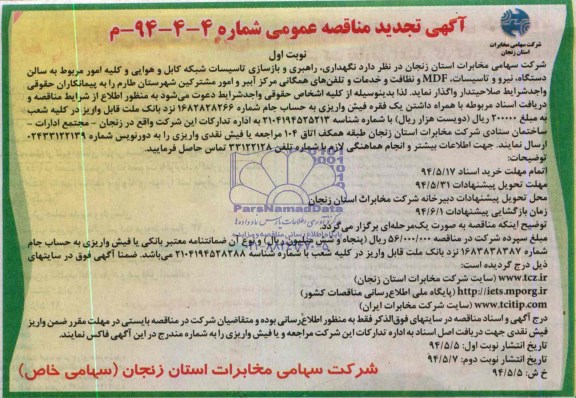 شرکت سهامی مخابرات
استان زنجان
آگهی تجدید مناقصه عمومی شماره ۴-۴-۹۴-م
نوبت اول
شرکت سهامی مخابرات استان زنجان در نظر دارد نگهداری، راهبری و بازسازی تاسیسات شبکه کابل و هوایی و کلیه امور مربوط به سالن
دستگاه، نیرو و تاسیسات، MDF و نظافت و خدمات و تلفن‌های همگانی مرکز آببر و امور مشترکین شهرستان طارم را به پیمانکاران حقوقی
واجدشرایط صلاحیتدار واگذار نماید. لذا بدینوسیله از کلیه اشخاص حقوقی واجدشرایط دعوت می‌شود به منظور اطلاع از شرایط مناقصه و
دریافت اسناد مربوطه با همراه داشتن یک فقره فیش واریزی به حساب جام شماره ۱۶۸۲۸۲۸۲۶۶ نزد بانک ملت قابل واریز در کلیه شعب
به مبلغ ۲۰۰۰۰۰ ریال (دویست هزار ریال) با شماره شناسه ۲۱۰۴۱۹۴۵۲۵۲۱۳ به اداره تدارکات این شرکت واقع در زنجان - مجتمع ادارات -
ساختمان ستادی شرکت مخابرات استان زنجان طبقه همکف اتاق ۱۰۴ مراجعه یا فیش نقدی واریزی را به دورنویس شماره ۰۲۴۳۳۱۲۲۱۳۹
ارسال نمایند. جهت اطلاعات بیشتر و انجام هماهنگی لازم با شماره تلفن ۳۳۱۲۲۱۲۸ تماس حاصل فرمایید.
توضیحات:
اتمام مهلت خرید اسناد ۹۴/۵/۱۷
مهلت تحویل پیشنهادات ۹۴/۵/۳۱
محل تحویل پیشنهادات دبیرخانه شرکت مخابرات استان زنجان
زمان بازگشایی پیشنهادات ۹۴/۶/۱
توضیح اینکه مناقصه به صورت یک‌مرحله‌ای برگزار می‌گردد.
مبلغ سپرده شرکت در مناقصه ۵۶/۰۰۰/۰۰۰ ریال (پنجاه و شش میلیون ریال) و نوع آن ضمانتنامه معتبر بانکی یا فیش واریزی به حساب جام
شماره ۱۶۸۳۸۳۸۳۸۷ نزد بانک ملت قابل واریز در کلیه شعب با شماره شناسه ۲۱۰۴۱۹۴۵۲۸۲۸۸ می‌باشد. ضمنا آگهی فوق در سایتهای
ذیل درج گردیده است:
www.tcz.ir (سایت شرکت مخابرات استان زنجان)
http://iets.mporg.ir (پایگاه ملی اطلاع‌رسانی مناقصات کشور)
www.tcitip.com (سایت شرکت مخابرات ایران)
درج آگهی و اسناد مناقصه در سایتهای فوق‌الذکر فقط به منظور اطلاع‌رسانی بوده و متقاضیان شرکت در مناقصه بایستی در مهلت مقرر ضمن واریز
فیش نقدی جهت دریافت اصل اسناد به اداره تدارکات این شرکت مراجعه و یا فیش واریزی را به شماره مندرج در این آگهی فاکس نمایند.
تاریخ انتشار نوبت اول: ۹۴/۵/۵
تاریخ انتشار نوبت دوم: ۹۴/۵/۷
خ ش: ۹۴/۵/۵
شرکت سهامی مخابرات استان زنجان (سهامی خاص)
ParsNamadData